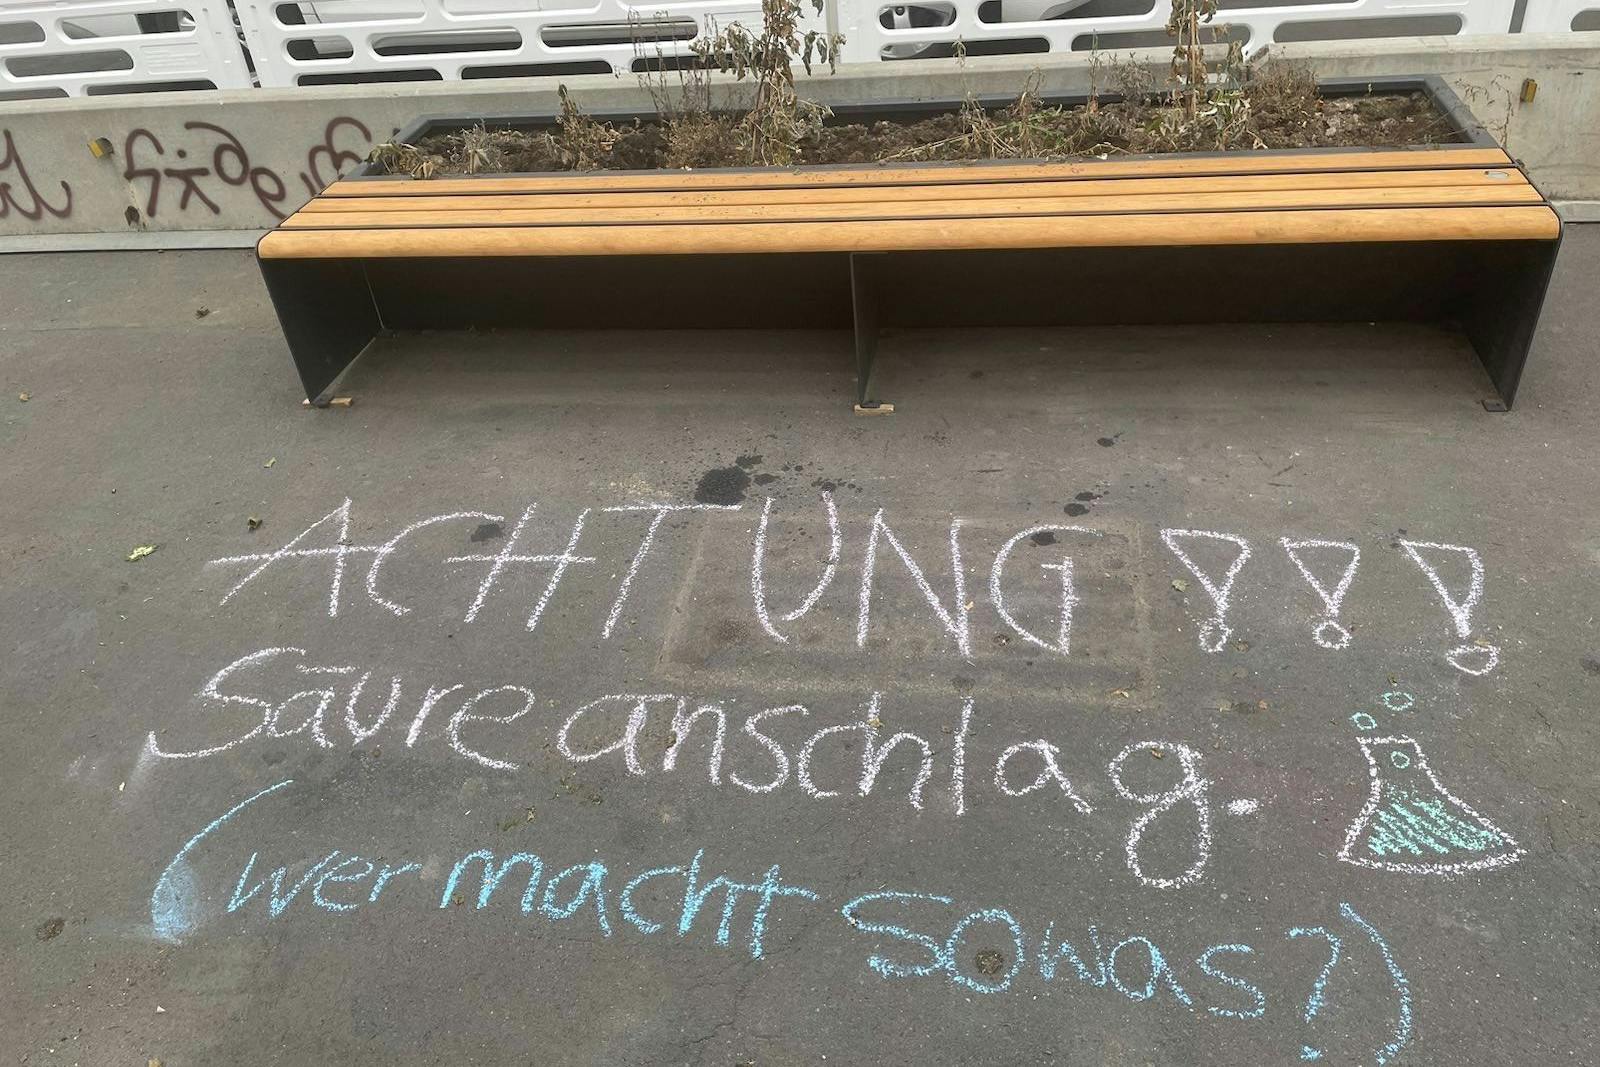 ACHTUNG !!!
Säureanschlag.
(wer macht sowas?)